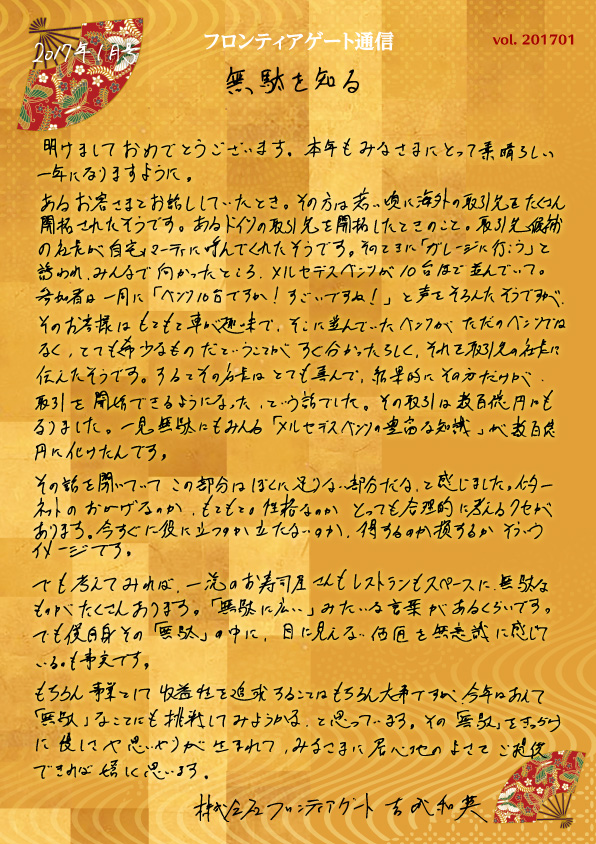 2017年1月号
フロンティアゲート通信
vol. 201701
無駄を知る
明けましておめでとうございます。本年もみなさまにとって素晴らしい
一年になりますように。
あるお客さまとお話ししていたとき。その方は若い頃に海外の取引先をたくさん
開拓されたそうです。あるドイツの取引先を開拓したときのこと。取引先候補
の社長が自宅パーティに呼んでくれたそうです。そのときに「ガレージに行こう」と
誘われ、みんなで向かったところ、メルセデスベンツが10台ほど並んでいて。
参加者は一同に「ベンツ10台ですか!すごいですね!」と声をそろえたそうですが、
そのお客様はもともと車が趣味で、そこに並んでいたベンツがただのベンツでは
なく、とても希少なものだということがすぐ分かったらしく、それを取引先の社長に
伝えたそうです。するとその社長はとても喜んで、結果的にその方だけが、
取引を開始できるようになった、という話でした。その取引は数百億円にも
なりました。一見無駄にもみえる「メルセデスベンツの豊富な知識」が数百億
円に化けたんです。
その話を聞いていてこの部分はぼくに足りない部分だな、と感じました。インター
ネットのおかげなのか、もともとの性格なのか とっても合理的に考えるクセが
あります。今すぐに役に立つのか立たないのか、得するのか損するか そういう
イメージです。
でも考えてみれば、一流のお寿司屋さんもレストランもスペースに、無駄な
ものがたくさんあります。「無駄に広い」みたいな言葉があるくらいです。
でも僕自身その「無駄」の中に、目に見えない価値を無意識に感じて
いるのも事実です。
もちろん事業として収益性を追求することはもちろん大事ですが、今年はあえて
「無駄」なことにも挑戦してみようかな、と思っています。その「無駄」をきっかけ
に優しさや思いやりが生まれて、みなさまに居心地のよさをご提供
できれば嬉しく思います。
株式会社フロンティアゲート 吉武和英